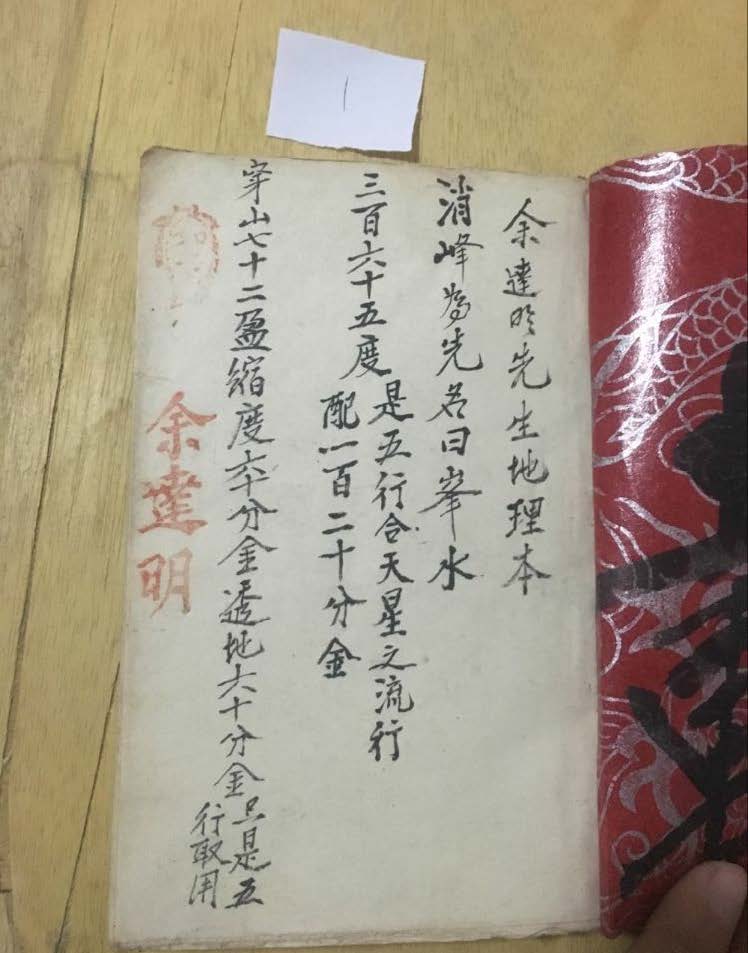 1
余達明先生地理本
消峰為先名曰峯水
三百六十五度
是五行合天星之流行
配一百二十分金
穿山七十二盈縮度六十分金透地六十分金
只是五
行取用
余達明